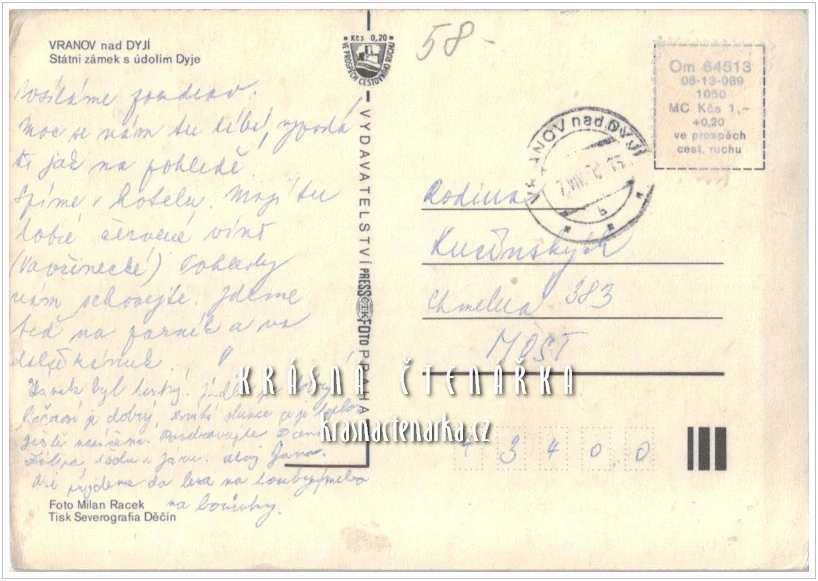 VRANOV nad DYJÍ
Státní zámek s údolím Dyje
Posíláme pozdrav.
Moc se nám tu líbí, vypadá
to jak na pohledě.
Spíme v hotelu. Mají tu
dobré červené víno
(Vavřinecké) Pohledy
nám schovejte. Jdeme
teď na parník a na
Zámek byl hezký. Jídlo je
Počasí je dobrý, slunce
ještě Pozdravujte
do lesa na houby, nebo
na borůvky.
Foto Milan Racek
Tisk Severografia Děčín
Kčs 0,20
VE PROSPĚCH CESTOVNÍHO RUCHU
VYDAVATELSTVÍ PRESSFOTO PRAHA
ČTK
58-
Om 64513
08-13-089
1050
MC Kčs 1,-
+0,20
ve prospěch
cest. ruchu
VRANOV nad DYJÍ
b
Rodina
Kučínských
Chmelná 383
MOST
4 3 4 0 0
KRÁSNÁ ČTENÁŘKA
krasnactenarka.cz